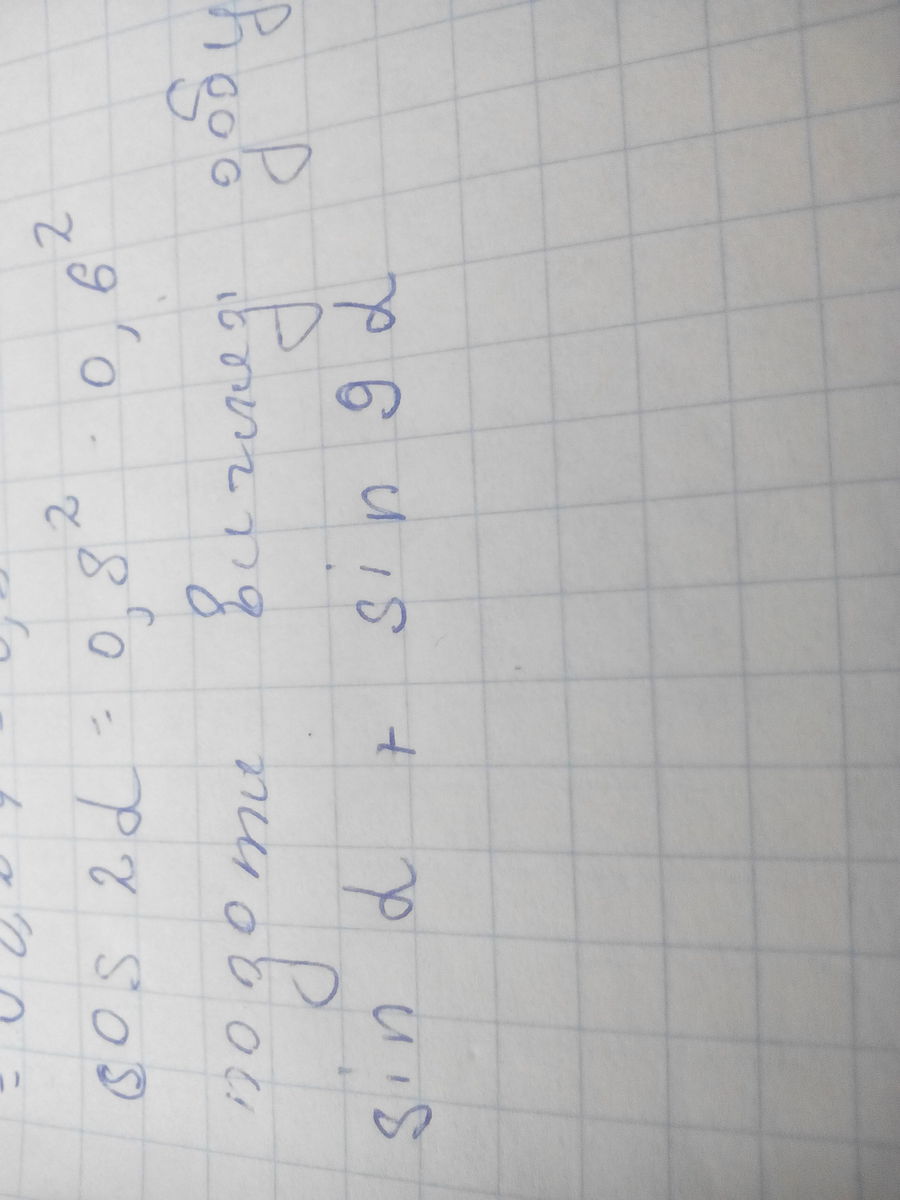 cos 2α = 0,8² · 0,6²
подати вигляді добу
sin α + sin 9α